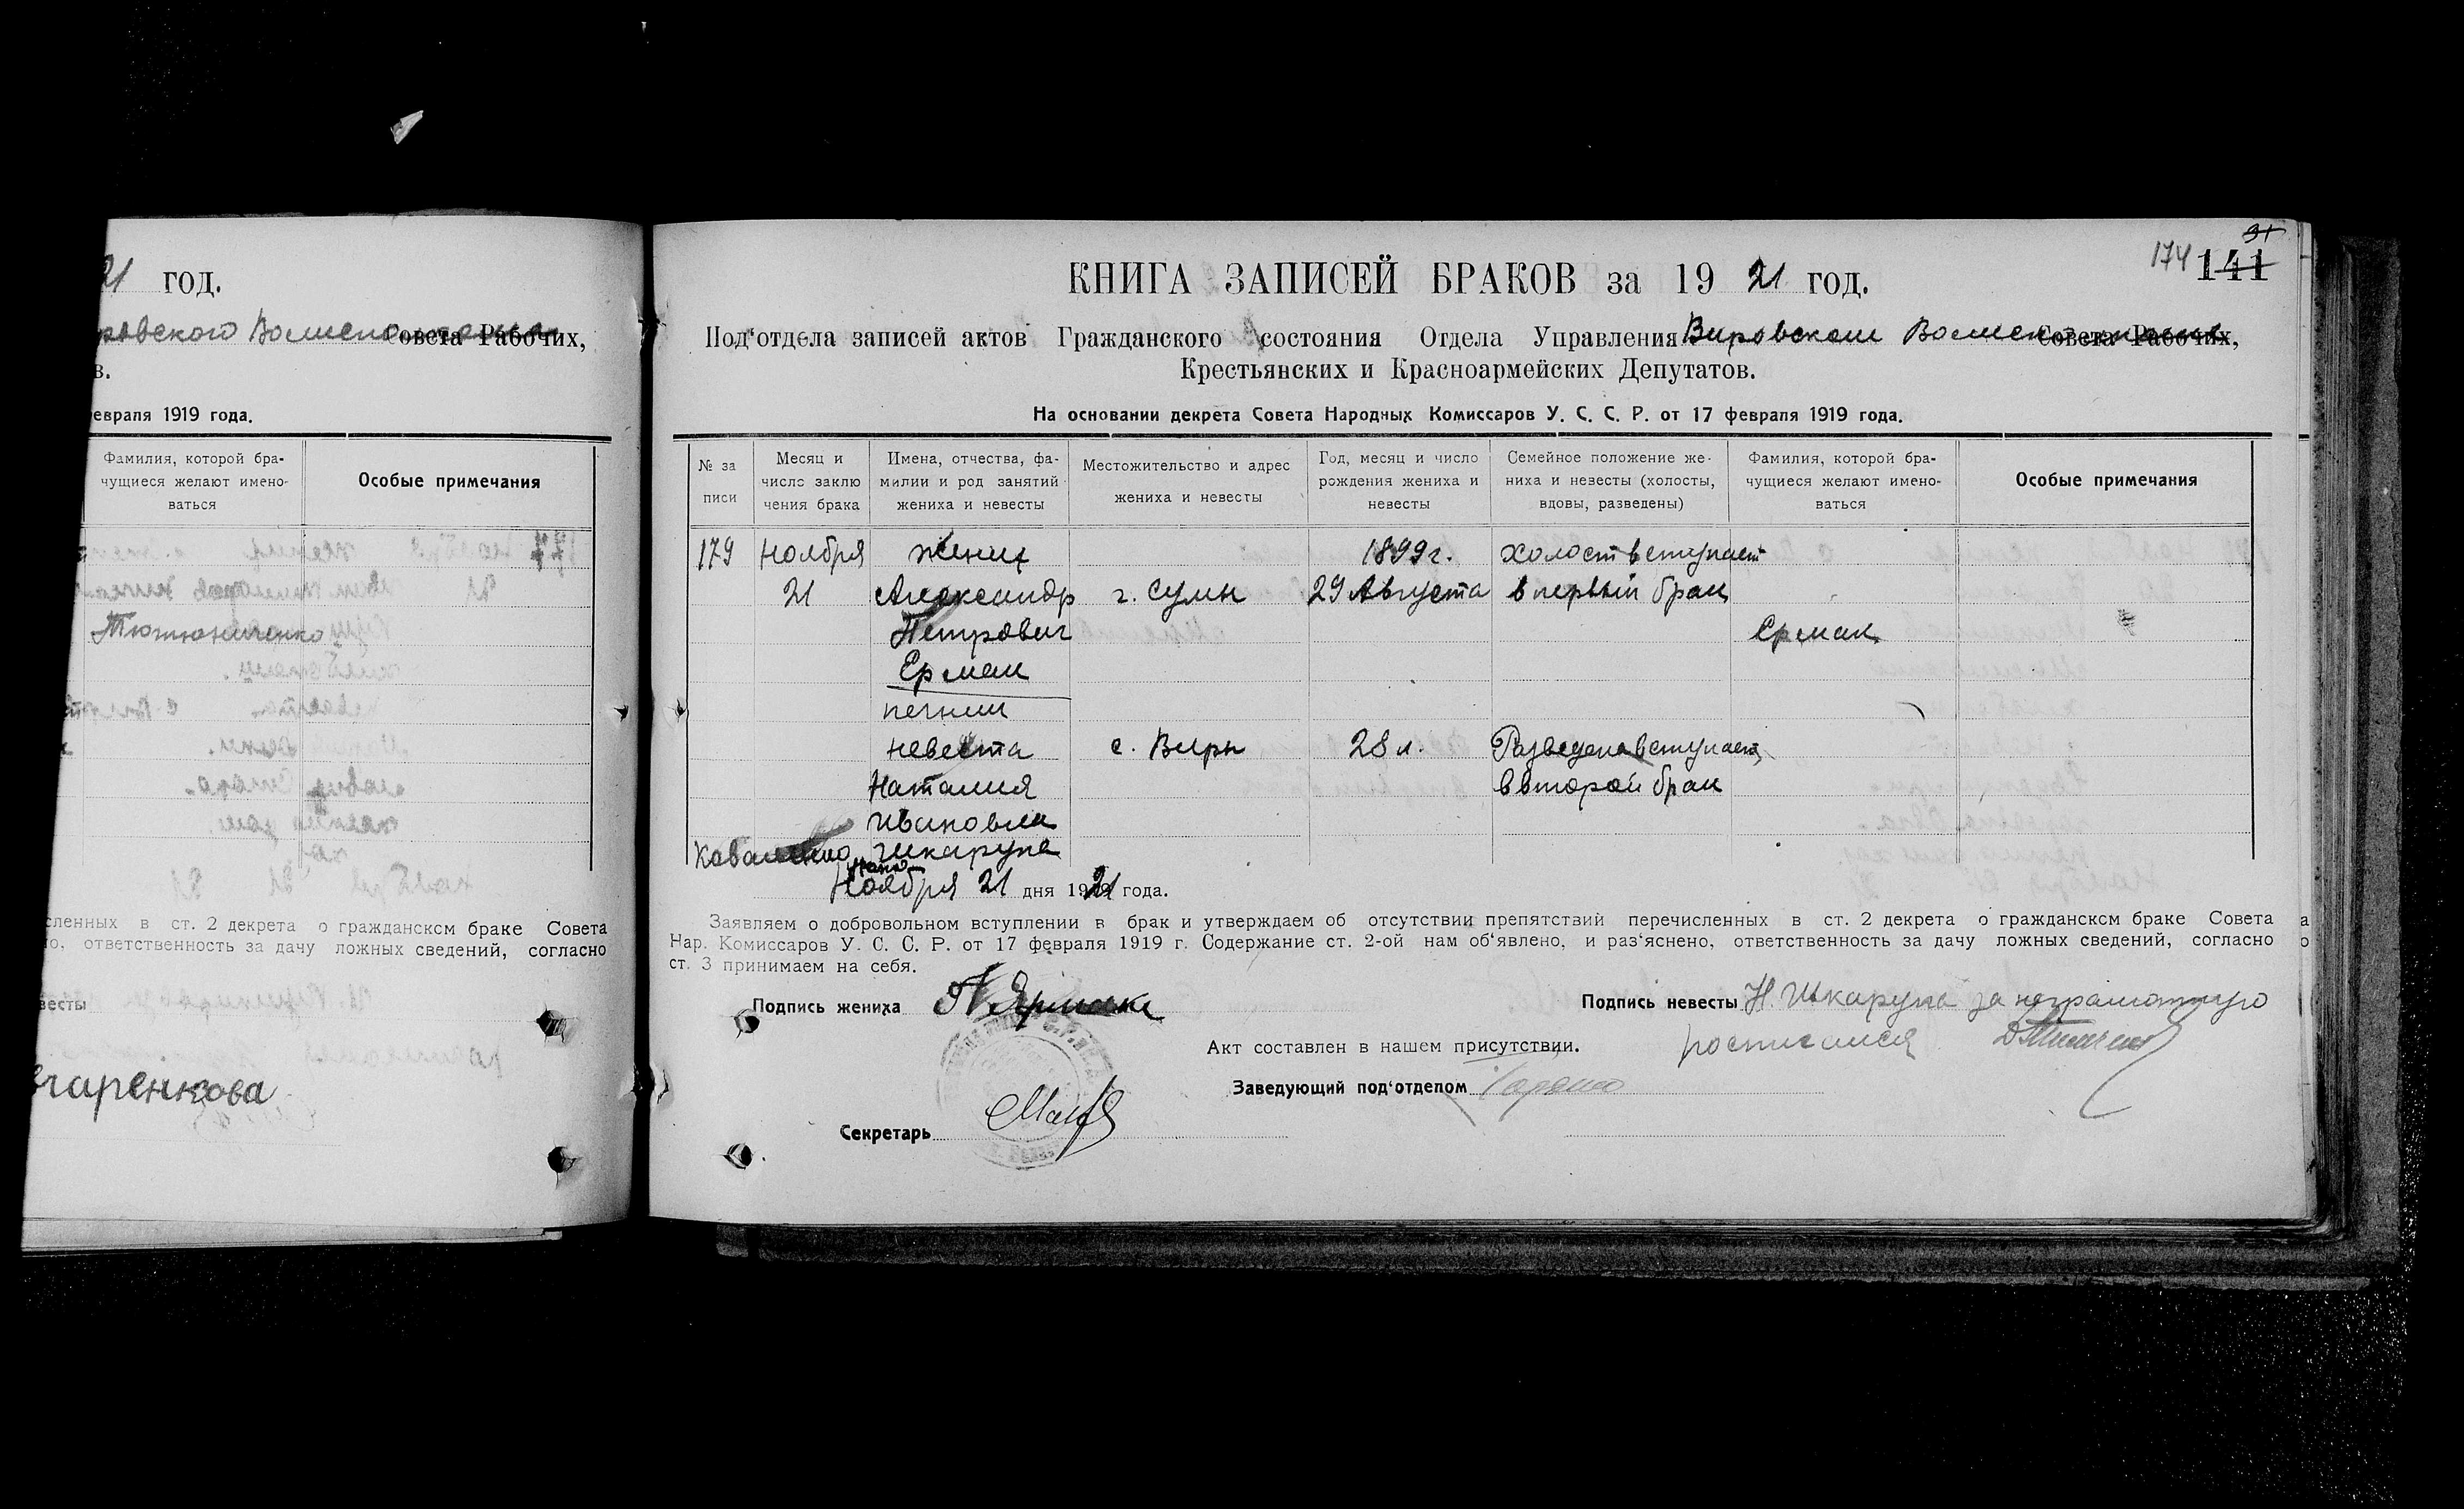 21 год.
Совета Рабочих,
в.
евраля 1919 года.
Фамилия, которой бра-
чущиеся желают имено-
ваться
Особые примечания
Тютюниченко
сленных в ст. 2 декрета о гражданском браке Совета
о, ответственность за дачу ложных сведений, согласно
весты
чаренкова
31
174 141
КНИГА ЗАПИСЕЙ БРАКОВ за 19 21 год.
Под'отдела записей актов Гражданского состояния Отдела Управления Вировском Совета Рабочих,
Крестьянских и Красноармейских Депутатов.
На основании декрета Совета Народных Комиссаров У. С. С. Р. от 17 февраля 1919 года.
№ за
писи
Месяц и
число заклю
чения брака
Имена, отчества, фа-
милии и род занятий
жениха и невесты
Местожительство и адрес
жениха и невесты
Год, месяц и число
рождения жениха и
невесты
Семейное положение же-
ниха и невесты (холосты,
вдовы, разведены)
Фамилия, которой бра-
чущиеся желают имено-
ваться
Особые примечания
179 Ноября жених 1899 г. холост вступает
21 Александр г. Сумы 29 Августа в первый брак
Петрович Ермак
Ермак
невеста с. Виры 28 л. Разведена вступает
Наталия в второй брак
Ивановна
Шкарупа
Ноября 21 дня 1921 года.
Заявляем о добровольном вступлении в брак и утверждаем об отсутствии препятствий перечисленных в ст. 2 декрета о гражданском браке Совета
Нар. Комиссаров У. С. С. Р. от 17 февраля 1919 г. Содержание ст. 2-ой нам об'явлено, и раз'яснено, ответственность за дачу ложных сведений, согласно
ст. 3 принимаем на себя.
Подпись жениха Ярмак
Подпись невесты Н. Шкарупа за неграмотную
Акт составлен в нашем присутствии. росписался
Заведующий под'отделом
Секретарь